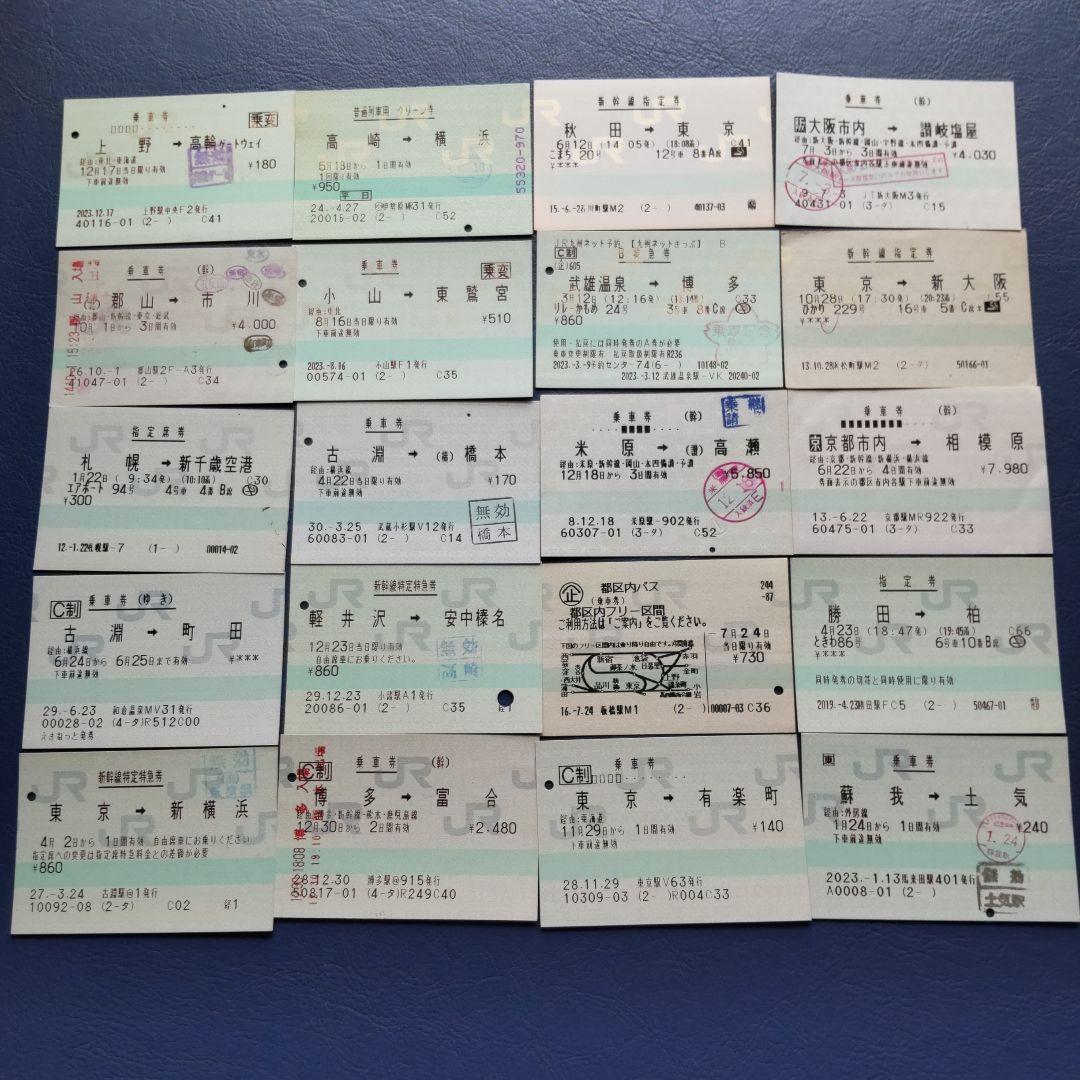 乗車券
乗変
上野 → 高輪ゲートウェイ
経由:東北・東海道
12月17日当日限り有効
¥180
下車前途無効
2023.12.17 上野駅中央F2発行
40116-01 (2- ) C41
普通列車用 グリーン券
高崎 → 横浜
1日間有効
1回限り有効
¥950
平日
24.-4.27
20015-02 (2- ) C52
55320-970
新幹線指定券
秋田 → 東京
6月12日 (14:05発) (18:08着) C41
こまち 20号 12号車 8番A席
¥***
(2- ) 40137-03
乗車券 (幹)
阪 大阪市内 → 讃岐塩屋
経由:新大阪・新幹線・岡山・宇野線・本四備讃・予讃
7月 3日から 3日間有効
¥4,030
40431-01 (3-タ) C15
乗車券 (幹)
(北)郡山 → 市川
経由:郡山・新幹線・東京・総武
10月 1日から 3日間有効
¥4,000
下車前途無効
26.10.-1 郡山駅2F-A3発行
41047-01 (2- ) C34
乗車券
乗変
小山 → 東鷲宮
経由:東北
8月16日当日限り有効
¥510
下車前途無効
2023.-8.16 小山駅F1発行
00574-01 (2- ) C35
JR九州ネット予約 【九州ネットきっぷ】 B
C制
B特急券
(企)605
武雄温泉 → 博多
3月12日 (12:16発) (13:14着) C33
リレーかもめ 24号 3号車 8番C席
¥860
使用・払戻には同時発券のA券が必要
乗車変更制限有 払戻取扱制限有R236
2023.-3.-9予約センター74(6- ) 10148-02
2023.-3.12 武雄温泉駅-VK 20240-02
新幹線指定券
東京 → 新大阪
10月28日 (17:30発) (20:23着) C55
ひかり 229号 16号車 5番 C席
¥***
(2- ) 50166-01
指定席券
札幌 → 新千歳空港
1月22日 ( 9:34発) (10:10着) C30
エアポート 94号 4号車 4番 B席
¥300
12.-1.22札幌駅-7 (1- ) 00014-02
乗車券
古淵 → (横)橋本
経由:横浜線
4月22日当日限り有効
¥170
下車前途無効
無効
橋本
30.-3.25 武蔵小杉駅V12発行
60083-01 (2- ) C14
乗車券 (幹)
米原 → (讃)高瀬
経由:米原・新幹線・岡山・本四備讃・予讃
12月18日から 3日間有効
¥5,850
下車前途無効
8.12.18 米原駅-902発行
60307-01 (3-タ) C52
乗車券 (幹)
京 京都市内 → 相模原
経由:京都・新幹線・新横浜・横浜線
6月22日から 4日間有効
¥7,980
券面表示の都区市内各駅下車前途無効
13.-6.22 京都駅MR922発行
60475-01 (3-タ) C33
C制
乗車券 (ゆき)
古淵 → 町田
経由:横浜線
6月24日から 6月25日まで有効
¥***
下車前途無効
29.-6.23 和倉温泉MV31発行
00028-02 (4-タ)R512C00
えきねっと発券
新幹線特定特急券
軽井沢 → 安中榛名
12月23日当日限り有効
自由席車にお乗りください。
¥860
29.12.23 小諸駅A1発行
20086-01 (2- ) C35
企
都区内パス
(乗車券)
都区内フリー区間
ご利用方法は「ご案内」をご覧ください。
244
-87
7月24日
当日限り有効
¥730
新宿 池袋 日暮里 赤羽
御茶ノ水
上野
品川 東京
16.-7.24 板橋駅M1 (2- ) 00007-03 C36
指定券
勝田 → 柏
4月23日 (18:47発) (19:45着) C66
ときわ86号 6号車10番B席
¥***
同時発券の切符と同時使用に限り有効
2019.-4.23勝田駅FC5 (2- ) 50467-01
新幹線特定特急券
東京 → 新横浜
4月 2日から 1日間有効 自由席車にお乗りください
指定席への変更は指定席特急料金との差額が必要
¥860
27.-3.24 古淵駅@1発行
10092-08 (2-タ) C02
C制
乗車券 (幹)
博多 → 富合
経由:博多・新幹線・熊本・鹿児島線
12月30日から 2日間有効
¥2,480
下車前途無効
28.12.30 博多駅@915発行
50817-01 (4-タ)R249C40
C制
乗車券
東京 → 有楽町
経由:東海道
11月29日から 1日間有効
¥140
下車前途無効
28.11.29 東京駅V63発行
10309-03 (2- )R004C33
東
乗車券
蘇我 → 土気
経由:外房線
1月24日から 1日間有効
¥240
下車前途無効
1.24
無効
土気駅
2023.-1.13馬来田駅401発行
A0008-01 (2- )